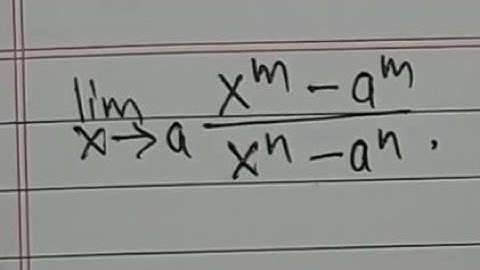 lim x→a (x^m - a^m)/(x^n - a^n).